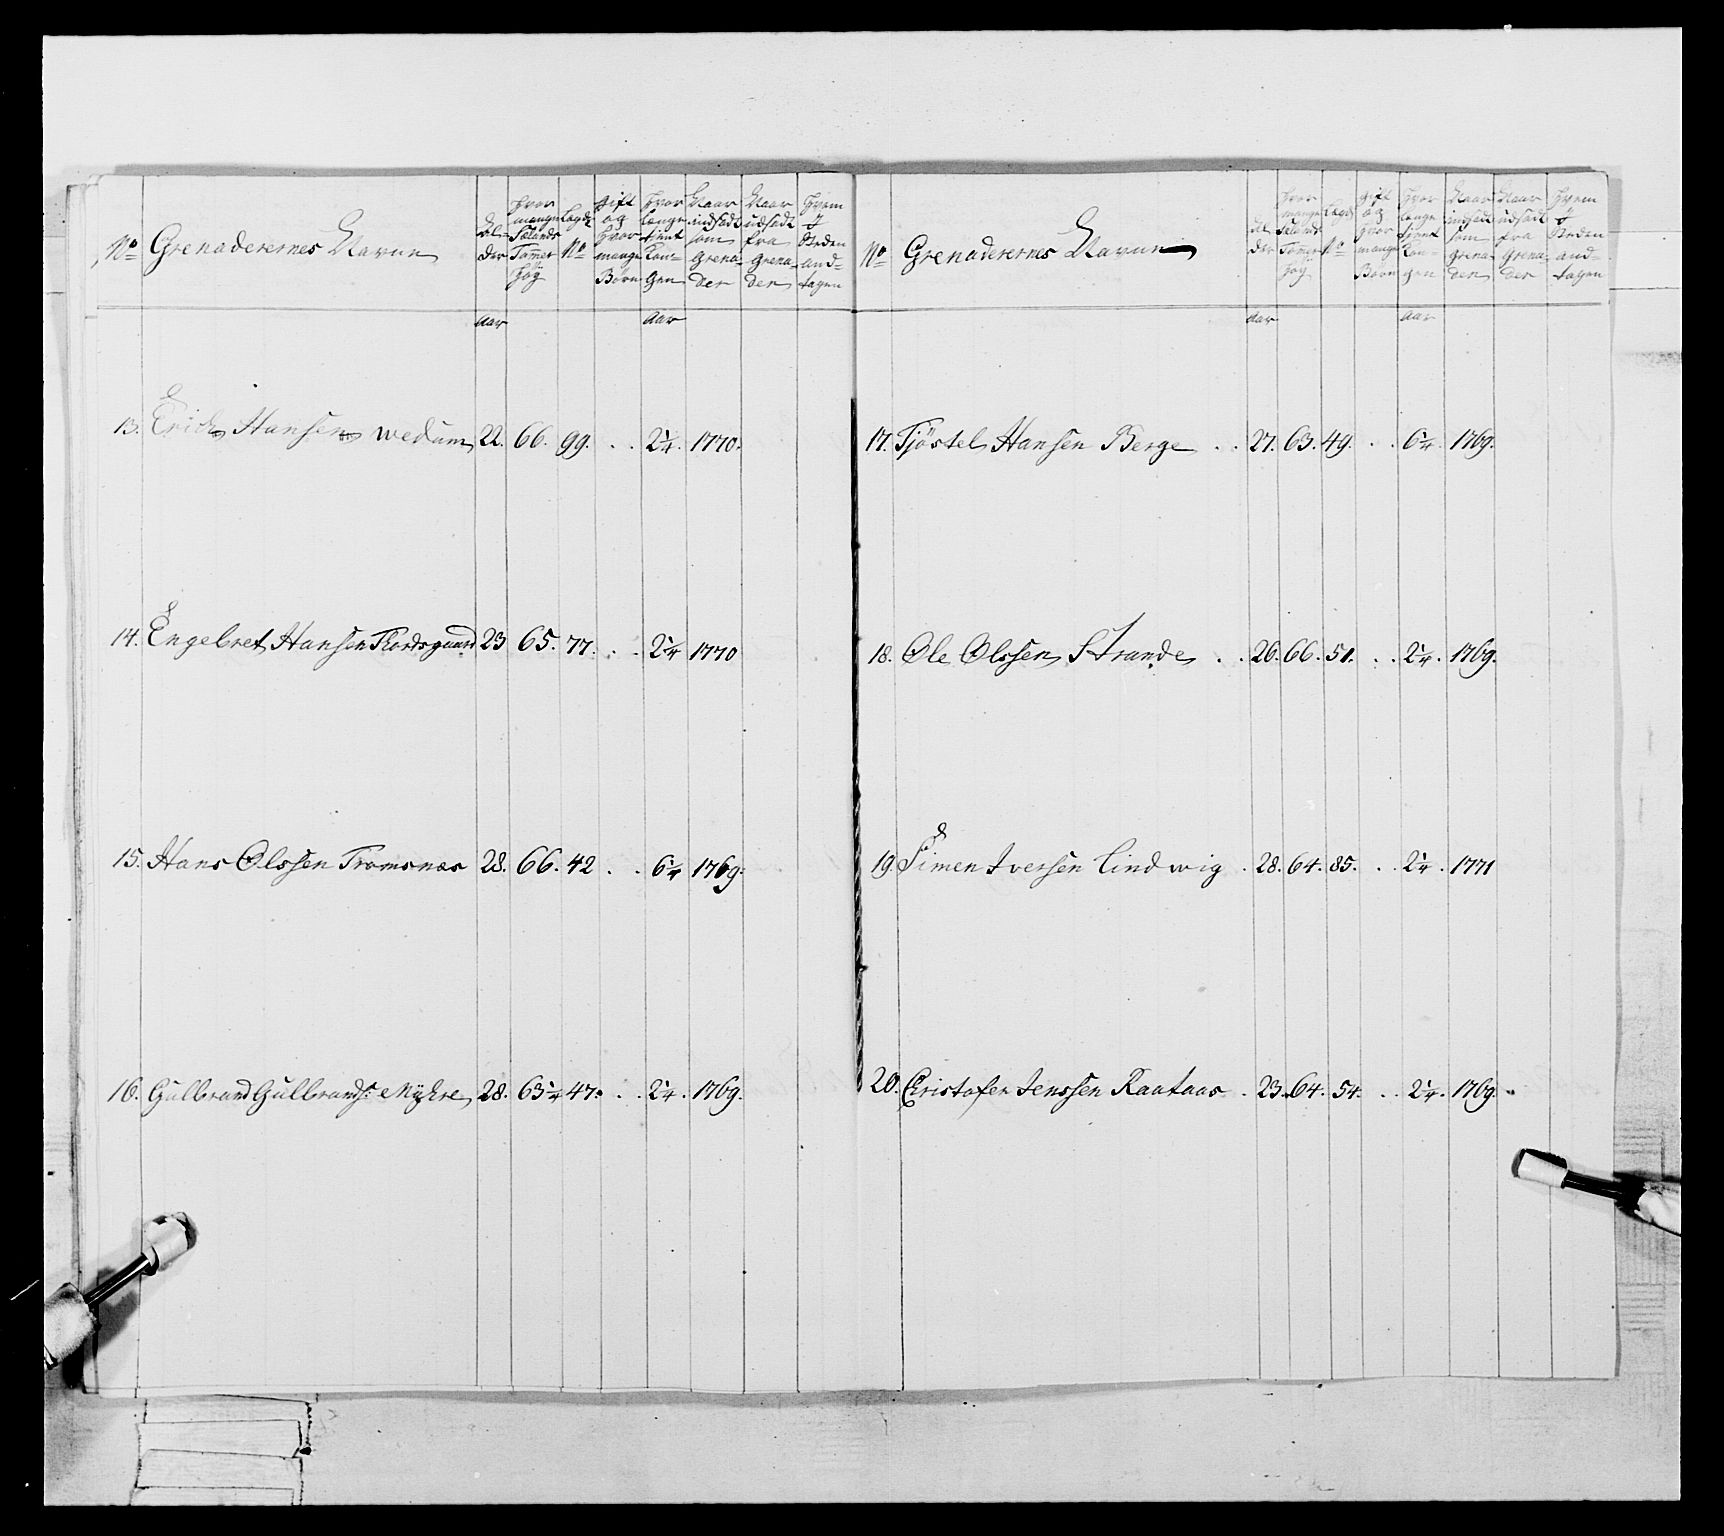 No Grenaderernes Navne
Al-
der
hvor
mange
Sælands
Tomer
høÿ
Legds
No
gift
og
hvor
mange
Børn
hvor
længe
tient
Kon-
gen
Naar
indsadt
som
Grena-
der
Naar
udsadt
fra
Grena-
der
hvem
J
Steden
and-
tagen
Aar
Aar
13. Erich Hansen Wedum 22. 66. 99. . . 2 1/4. 1770.
14. Engebret Hansen Thordsgaard 23 65. 77. . . 2 1/4 1770
15. Hans Olssen Tromsnæs 28. 66. 42 . . 6 1/4 1769.
16. Gulbrand Gulbrands: Mÿhre 28. 63 1/4 47. . . 2 1/4. 1769.
No Grenaderernes Navne
Al-
der
hvor
mange
Sælands
Tomer
høÿ
Legds
No
gift
og
hvor
mange
Børn
hvor
længe
tient
Kon-
gen
Naar
indsadt
som
Grena-
der
Naar
udsadt
fra
Grena-
der
hvem
J
Steden
and-
tagen
Aar
Aar
17. Tjöstel Hansen Berge . . 27. 63. 49. . . 6 1/4. 1769.
18. Ole Olssen Strande . . 26. 66. 51. . . 2 1/4. 1769.
19. Simen Iversen Lindwig . 28. 64. 85. . . 2 1/4. 1771
20. Christofer Jenssen Raataas . 23. 64. 54. . . 2 1/4. 1769.